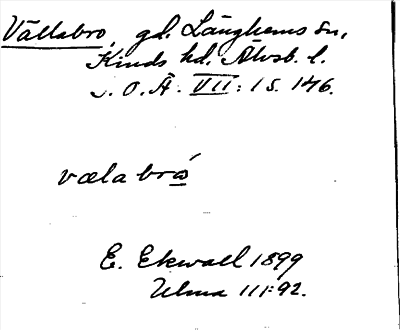 Vällabro, gd. Länghems sn,
Kinds hd. Älvsb. l.
S. O. Ä. VII: 1 s. 146.
vælabró̲
E. Ekwall 1899
Ulma 111:92.